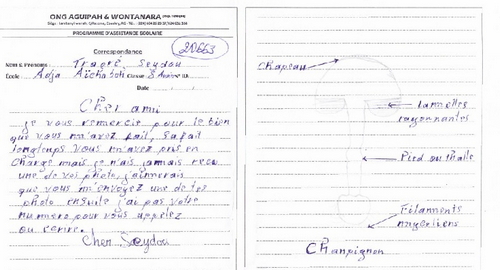 ONG AGUIPAH & WONTANARA
PROGRAMME D'ASSISTANCE SCOLAIRE
Correspondance
20663
Nom & Prénoms : Traoré Seydou
Ecole : Adja Aïcha Classe :
Date
Cher ami
je vous remercie pour le bien
que vous m'avez fait, sa fait
longtemps vous m'avez pris en
charge mais je n'ais jamais reçu
une de vos photo, j'aimerais
que vous m'envoyez une de tes
photo ensuite j'ai pas votre
numéro pour vous appelez
ou ecrire.
Cher Seydou
Chapeau
Lamelles
rayonnantes
Pied ou thalle
Filaments
mycéliens
Champignon